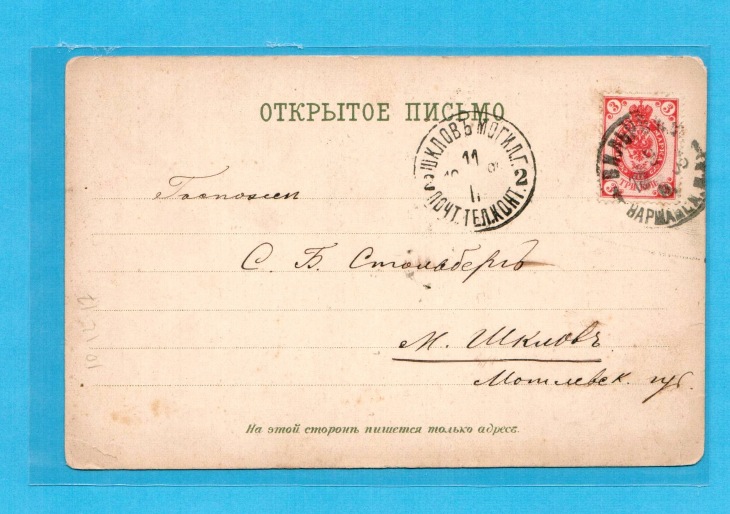 ОТКРЫТОЕ ПИСЬМО
3 3
ШКЛОВЪ МОГИЛ.Г.
11
2 2
ПОЧТ.ТЕЛ.КОНТ.
ВИЛЬН
ВАРШАВСК
Госпожѣ
С. Б. Стольбергъ
М. Шкловъ
Могилевск. губ.
На этой сторонѣ пишется только адресъ.